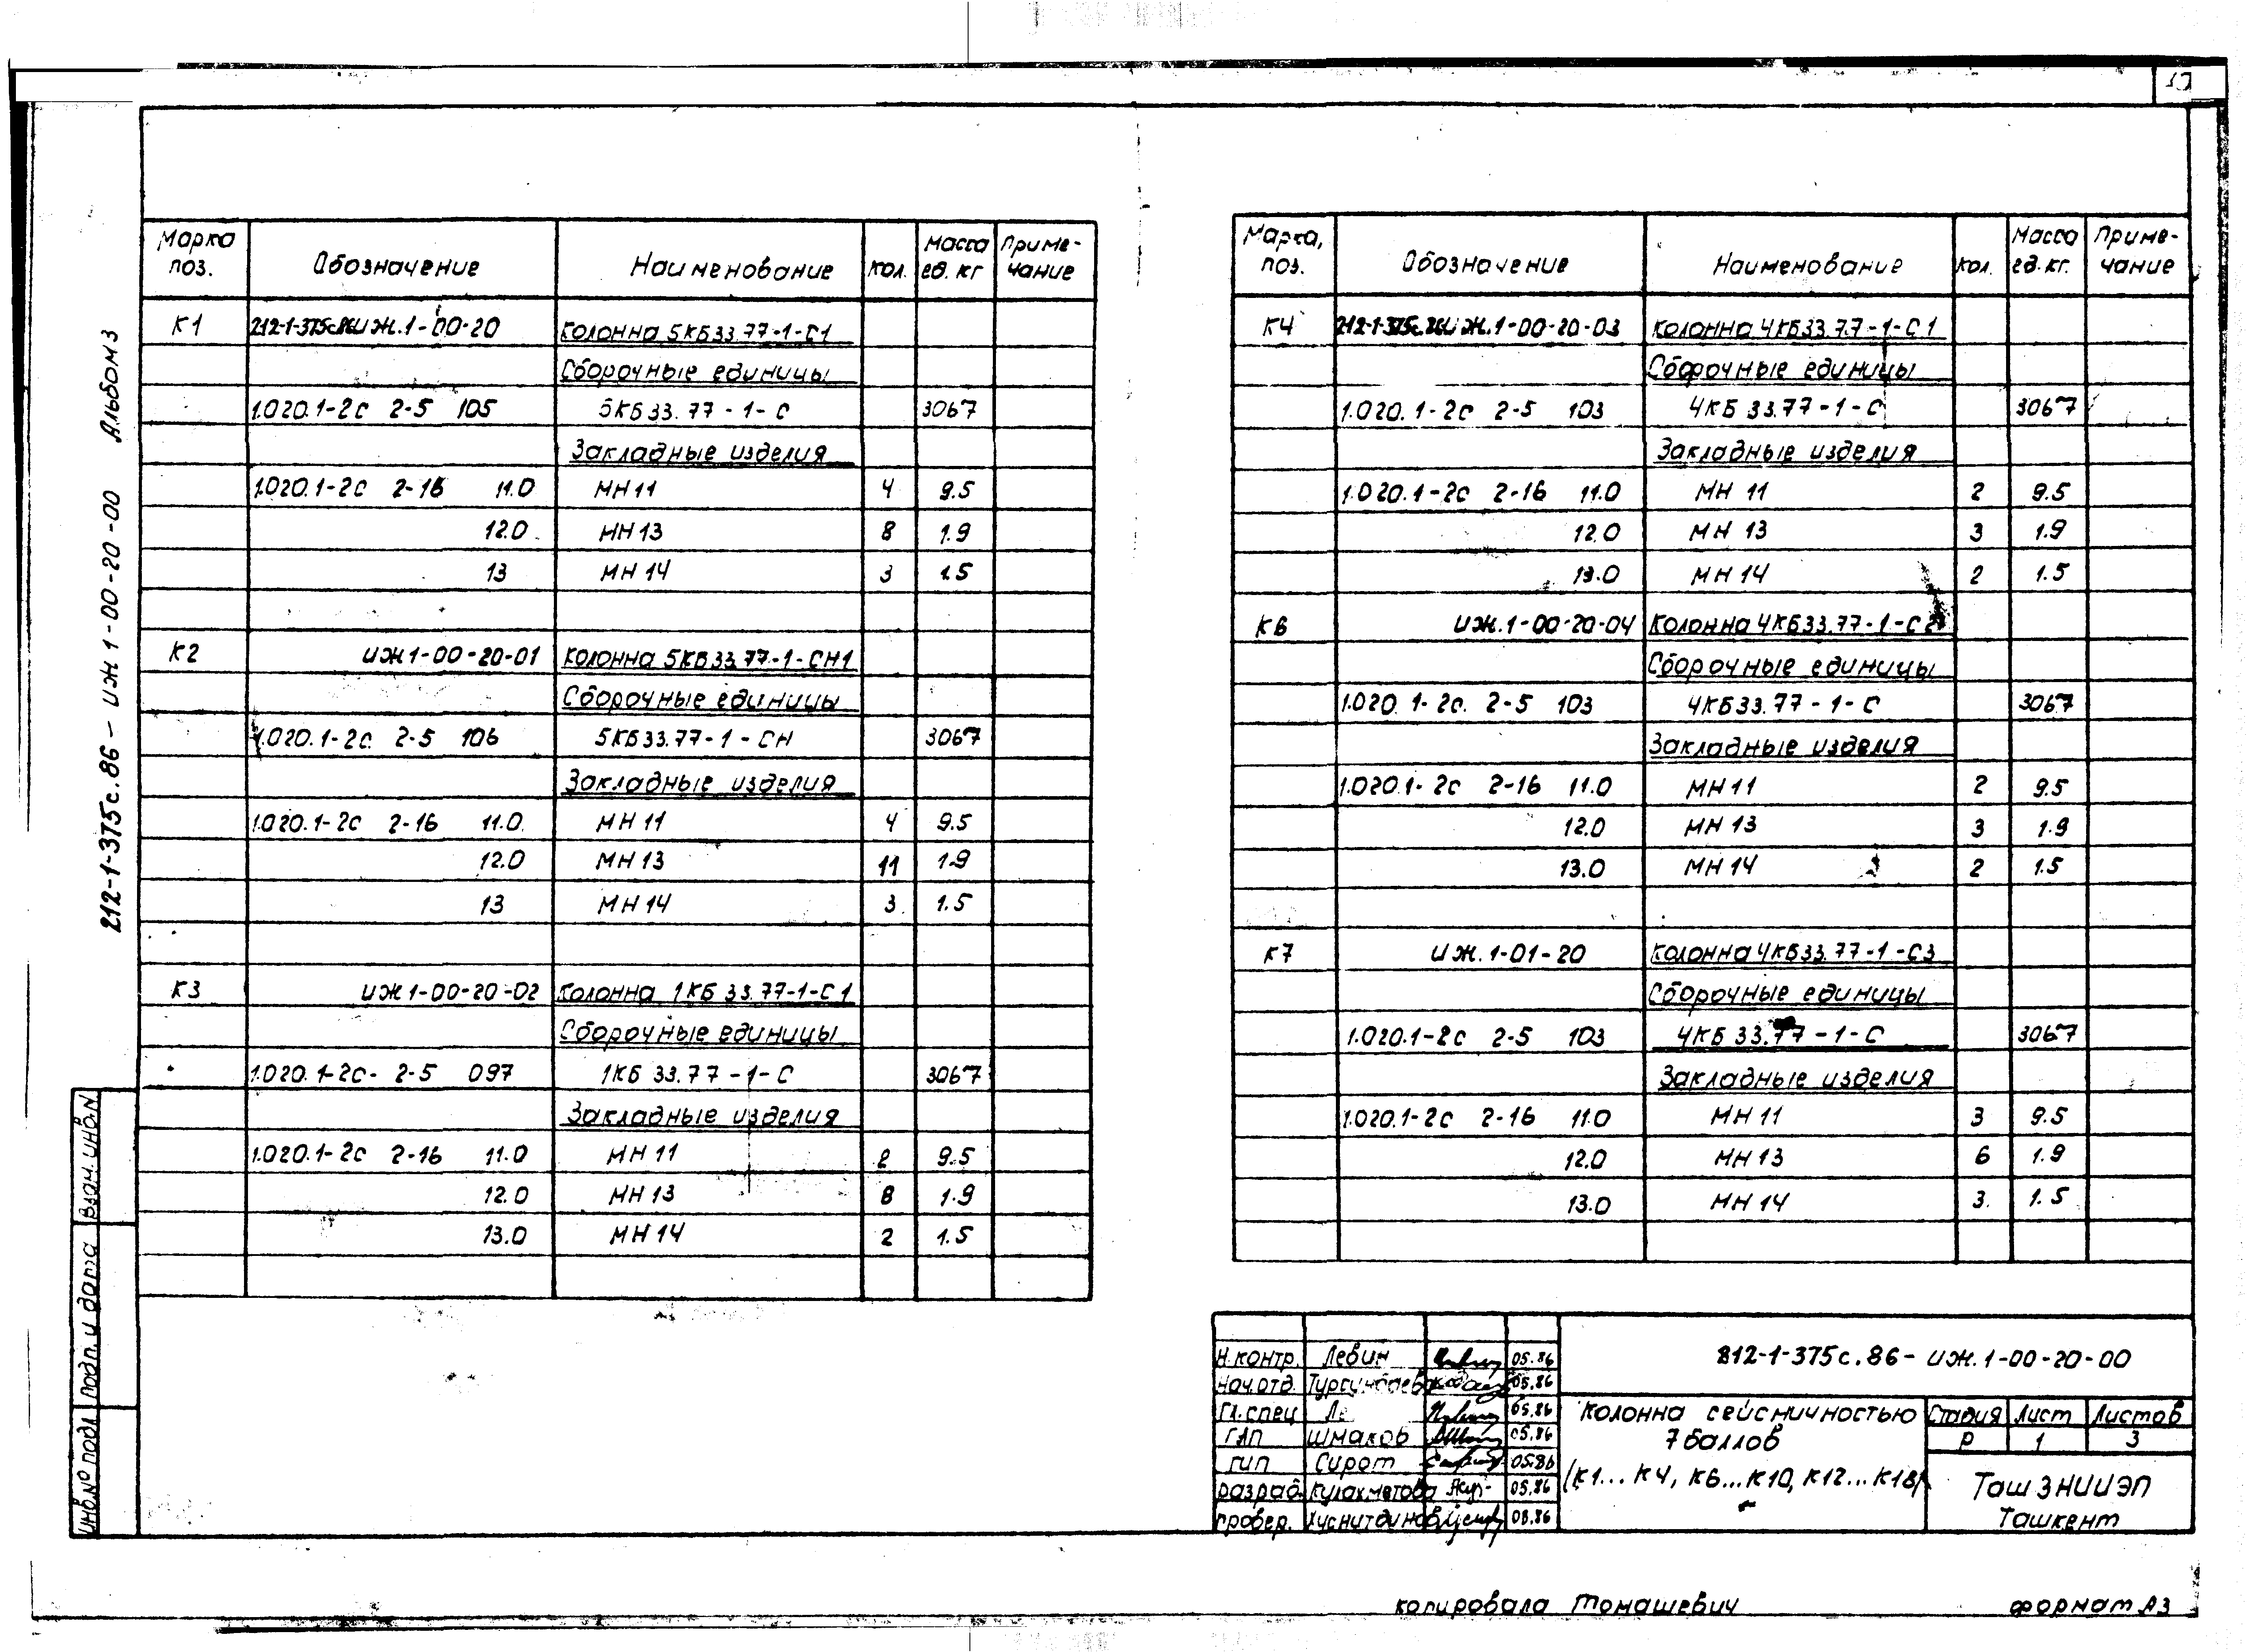 212-1-375с.86 - ИЖ 1-00-20-00 Альбом 3
Марка поз. Обозначение Наименование Кол. Масса ед. кг Приме- чание
К1 212-1-375с.86 ИЖ.1-00-20 Колонна 5КБ33.77-1-С1
Сборочные единицы
1.020.1-2с 2-5 105 5КБ33.77-1-С 3067
Закладные изделия
1.020.1-2с 2-16 11.0 МН11 4 9.5
12.0 МН13 8 1.9
13 МН14 3 1.5
К2 ИЖ1-00-20-01 Колонна 5КБ33.77-1-СН1
Сборочные единицы
1.020.1-2с. 2-5 106 5КБ33.77-1-СН 3067
Закладные изделия
1.020.1-2с 2-16 11.0 МН11 4 9.5
12.0 МН13 11 1.9
13 МН14 3 1.5
К3 ИЖ1-00-20-02 Колонна 1КБ33.77-1-С1
Сборочные единицы
1.020.1-2с- 2-5 097 1КБ 33.77-1-С 3067
Закладные изделия
1.020.1-2с 2-16 11.0 МН11 2 9.5
12.0 МН13 8 1.9
13.0 МН14 2 1.5
Марка, поз. Обозначение Наименование Кол. Масса ед. кг. Приме- чание
К4 212-1-375с.86 ИЖ.1-00-20-03 Колонна 4КБ33.77-1-С1
Сборочные единицы
1.020.1-2с 2-5 103 4КБ 33.77-1-С 3067
Закладные изделия
1.020.1-2с 2-16 11.0 МН 11 2 9.5
12.0 МН 13 3 1.9
13.0 МН14 2 1.5
К6 ИЖ.1-00-20-04 Колонна 4КБ33.77-1-С2
Сборочные единицы
1.020.1-2с. 2-5 103 4КБ33.77-1-С 3067
Закладные изделия
1.020.1-2с 2-16 11.0 МН11 2 9.5
12.0 МН13 3 1.9
13.0 МН14 2 1.5
К7 ИЖ.1-01-20 Колонна 4КБ33.77-1-С3
Сборочные единицы
1.020.1-2с 2-5 103 4КБ 33.77-1-С 3067
Закладные изделия
1.020.1-2с 2-16 11.0 МН11 3 9.5
12.0 МН13 6 1.9
13.0 МН14 3. 1.5
Взам. инв.N
Подп. и дата
Инв.№ подл
Н.контр. Левин 05.86
Нач.отд. Тургунбаев 05.86
Гл.спец 05.86
ГАП Шмаков 05.86
ГИП Сирот 05.86
Разраб. Кулахметова 05.86
Провер. Хуснитдинов 05.86
212-1-375с.86 - ИЖ.1-00-20-00
Колонна сейсмичностью
7 баллов
(К1...К4, К6...К10, К12...К18)
Стадия Лист Листов
Р 1 3
ТашЗНИИЭП
Ташкент
Копировала Томашевич Формат А3